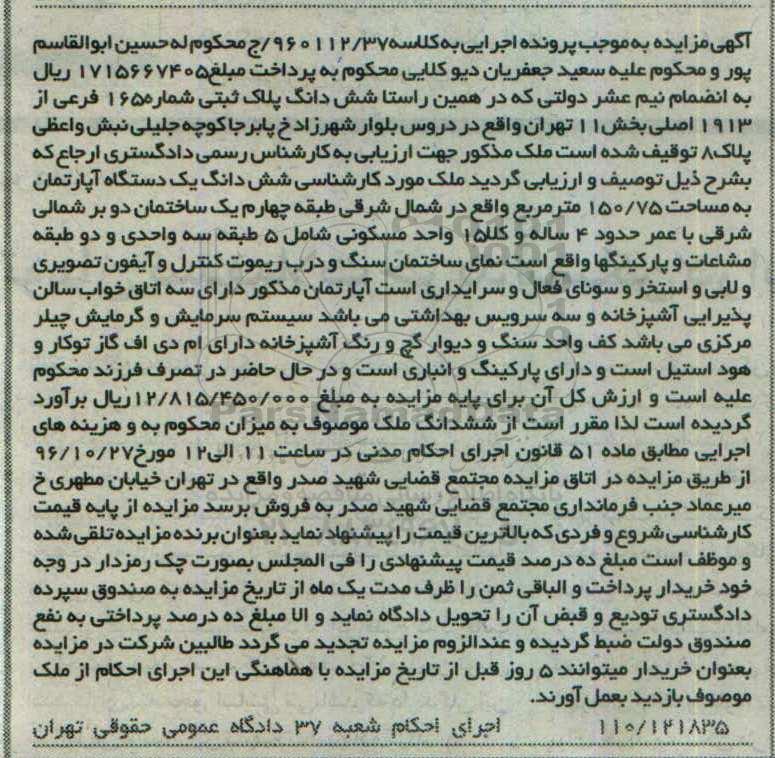 آگهی مزایده به موجب پرونده اجرایی به کلاسه ۹۶۰۱۱۲/۳۷/ج محکوم له حسین ابوالقاسم
پور و محکوم علیه سعید جعفریان دیو کلایی محکوم به پرداخت مبلغ ۱۷۱۵۶۶۷۴۰۵ ریال
به انضمام نیم عشر دولتی که در همین راستا شش دانگ پلاک ثبتی شماره ۱۶۵ فرعی از
۱۹۱۳ اصلی بخش ۱۱ تهران واقع در دروس بلوار شهرزاد خ پابرجا کوچه جلیلی نبش واعظی
پلاک ۸ توقیف شده است ملک مذکور جهت ارزیابی به کارشناس رسمی دادگستری ارجاع که
بشرح ذیل توصیف و ارزیابی گردید ملک مورد کارشناسی شش دانگ یک دستگاه آپارتمان
به مساحت ۱۵۰/۷۵ مترمربع واقع در شمال شرقی طبقه چهارم یک ساختمان دو بر شمالی
شرقی با عمر حدود ۴ ساله و کلا ۱۵ واحد مسکونی شامل ۵ طبقه سه واحدی و دو طبقه
مشاعات و پارکینگها واقع است نمای ساختمان سنگ و درب ریموت کنترل و آیفون تصویری
و لابی و استخر و سونای فعال و سرایداری است آپارتمان مذکور دارای سه اتاق خواب سالن
پذیرایی آشپزخانه و سه سرویس بهداشتی می باشد سیستم سرمایش و گرمایش چیلر
مرکزی می باشد کف واحد سنگ و دیوار گچ و رنگ آشپزخانه دارای ام دی اف گاز توکار و
هود استیل است و دارای پارکینگ و انباری است و در حال حاضر در تصرف فرزند محکوم
علیه است و ارزش کل آن برای پایه مزایده به مبلغ ۱۲/۸۱۵/۴۵۰/۰۰۰ ریال برآورد
گردیده است لذا مقرر است از ششدانگ ملک موصوف به میزان محکوم به و هزینه های
اجرایی مطابق ماده ۵۱ قانون اجرای احکام مدنی در ساعت ۱۱ الی ۱۲ مورخ ۹۶/۱۰/۲۷
از طریق مزایده در اتاق مزایده مجتمع قضایی شهید صدر واقع در تهران خیابان مطهری خ
میرعماد جنب فرمانداری مجتمع قضایی شهید صدر به فروش برسد مزایده از پایه قیمت
کارشناسی شروع و فردی که بالاترین قیمت را پیشنهاد نماید بعنوان برنده مزایده تلقی شده
و موظف است مبلغ ده درصد قیمت پیشنهادی را فی المجلس بصورت چک رمزدار در وجه
خود خریدار پرداخت و الباقی ثمن را ظرف مدت یک ماه از تاریخ مزایده به صندوق سپرده
دادگستری تودیع و قبض آن را تحویل دادگاه نماید و الا مبلغ ده درصد پرداختی به نفع
صندوق دولت ضبط گردیده و عندالزوم مزایده تجدید می گردد طالبین شرکت در مزایده
بعنوان خریدار میتوانند ۵ روز قبل از تاریخ مزایده با هماهنگی این اجرای احکام از ملک
موصوف بازدید بعمل آورند.
۱۱۰/۱۲۱۸۳۵ اجرای احکام شعبه ۳۷ دادگاه عمومی حقوقی تهران
ParsNamadData